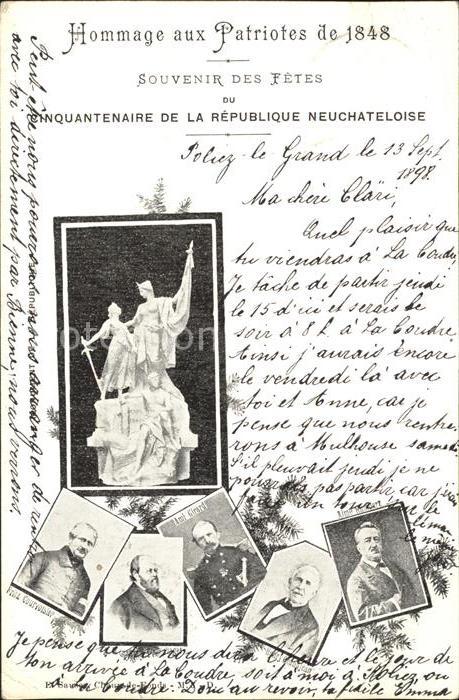 Hommage aux Patriotes de 1848
SOUVENIR DES FÊTES
DU
CINQUANTENAIRE DE LA RÉPUBLIQUE NEUCHATELOISE
Poliez-le-Grand le 13 Sept.
1898.
Ma chère Cläri,
Quel plaisir que
tu viendras à La Coudre,
Je tâche de partir jeudi
le 15 d'ici et serais le
soir à 8 h. à La Coudre
Ainsi j'aurais encore
le vendredi là avec
toi et Anne, car je
pense que nous rentre-
rons à Mulhouse samedi
S'il pleuvait jeudi je ne
pourrais pas partir car
un tour le
Fritz Courvoisier
Ami Girard
Je pense que tu nous diras l'heure et le jour de
ton arrivée à La Coudre, soit à moi à Poliez, ou
Donc au revoir ta fidèle Emma
Peut-être nous pourrons nous de
avec toi directement par Bienne, nous verrons